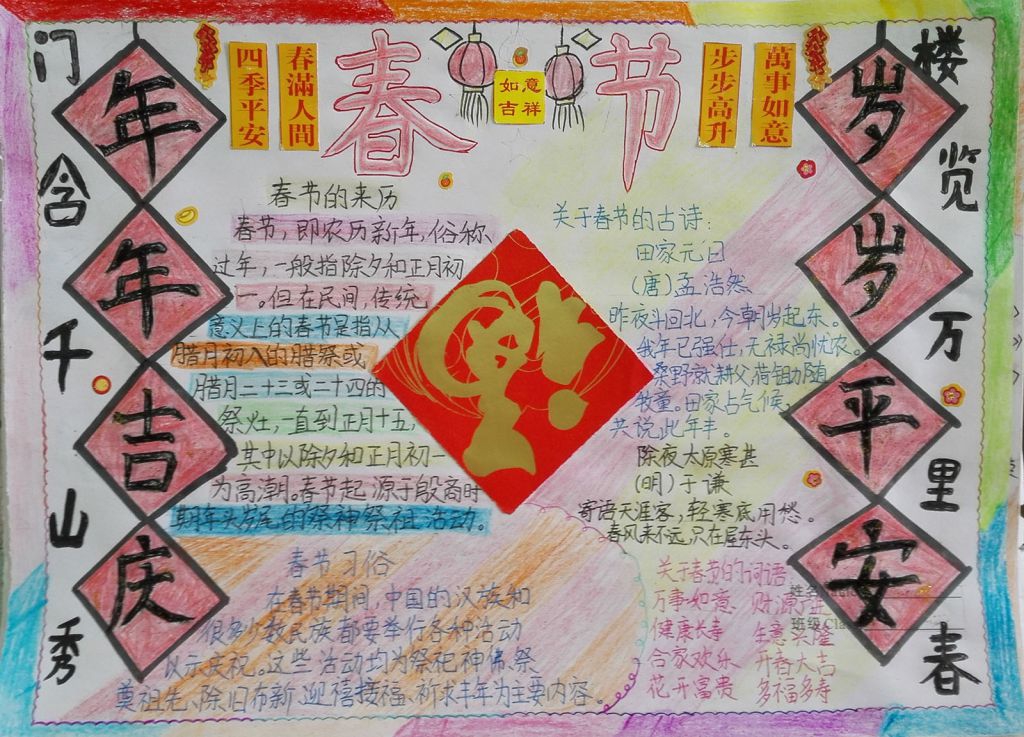 春节
四季平安
春滿人間
如意
吉祥
步步高升
萬事如意
门含千山秀
年年吉庆
岁岁平安
楼览万里春
春节的来历
春节,即农历新年,俗称
过年,一般指除夕和正月初
一。但在民间,传统
意义上的春节是指从
腊月初八的腊祭或
腊月二十三或二十四的
祭灶,一直到正月十五,
其中以除夕和正月初一
为高潮。春节起源于殷商时
期年头岁尾的祭神祭祖活动。
福
关于春节的古诗:
田家元日
(唐)孟浩然
昨夜斗回北,今朝岁起东。
我年已强仕,无禄尚忧农。
桑野就耕父,荷锄随
牧童。田家占气候,
共说此年丰。
除夜太原寒甚
(明)于谦
寄语天涯客,轻寒底用愁。
春风来不远,只在屋东头。
春节习俗
在春节期间,中国的汉族和
很多少数民族都要举行各种活动
以示庆祝。这些活动均为祭祀神佛、祭
奠祖先、除旧布新、迎禧接福、祈求丰年为主要内容。
关于春节的词语
万事如意 财源广进
健康长寿 生意兴隆
合家欢乐 开春大吉
花开富贵 多福多寿
姓名
班级Cla